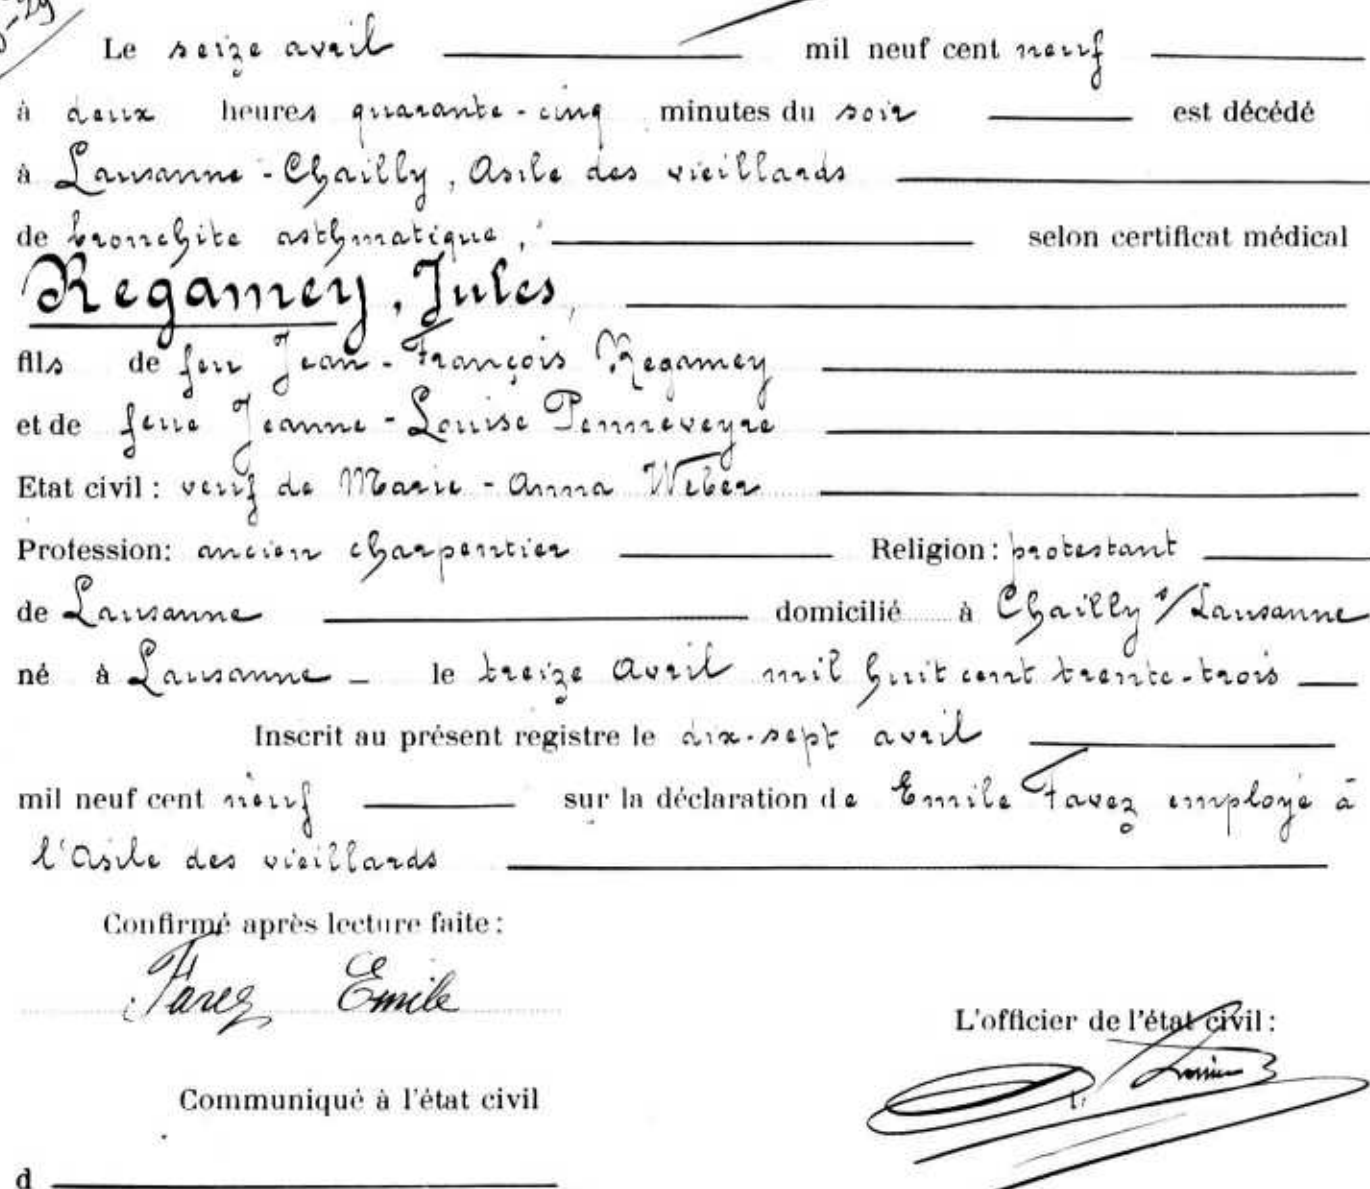 Le seize avril mil neuf cent neuf
à deux heures quarante-cinq minutes du soir est décédé
à Lausanne-Chailly, Asile des vieillards
de bronchite asthmatique, selon certificat médical
Regamey, Jules,
fils de feu Jean-François Regamey
et de feue Jeanne-Louise Penneveyre
Etat civil: veuf de Marie-Anna Weber
Profession: ancien charpentier Religion: protestant
de Lausanne domicilié à Chailly s/Lausanne
né à Lausanne le treize Avril mil huit cent trente-trois
Inscrit au présent registre le dix-sept avril
mil neuf cent neuf sur la déclaration de Emile Favez employé à
l'Asile des vieillards
Confirmé après lecture faite:
Favez Emile
L'officier de l'état civil:
Communiqué à l'état civil
d